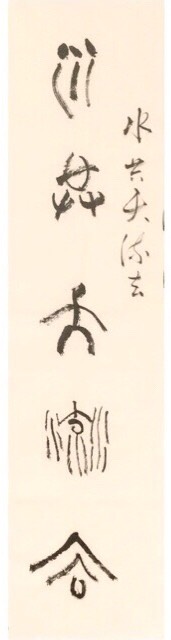 水共天流去
水共天流去